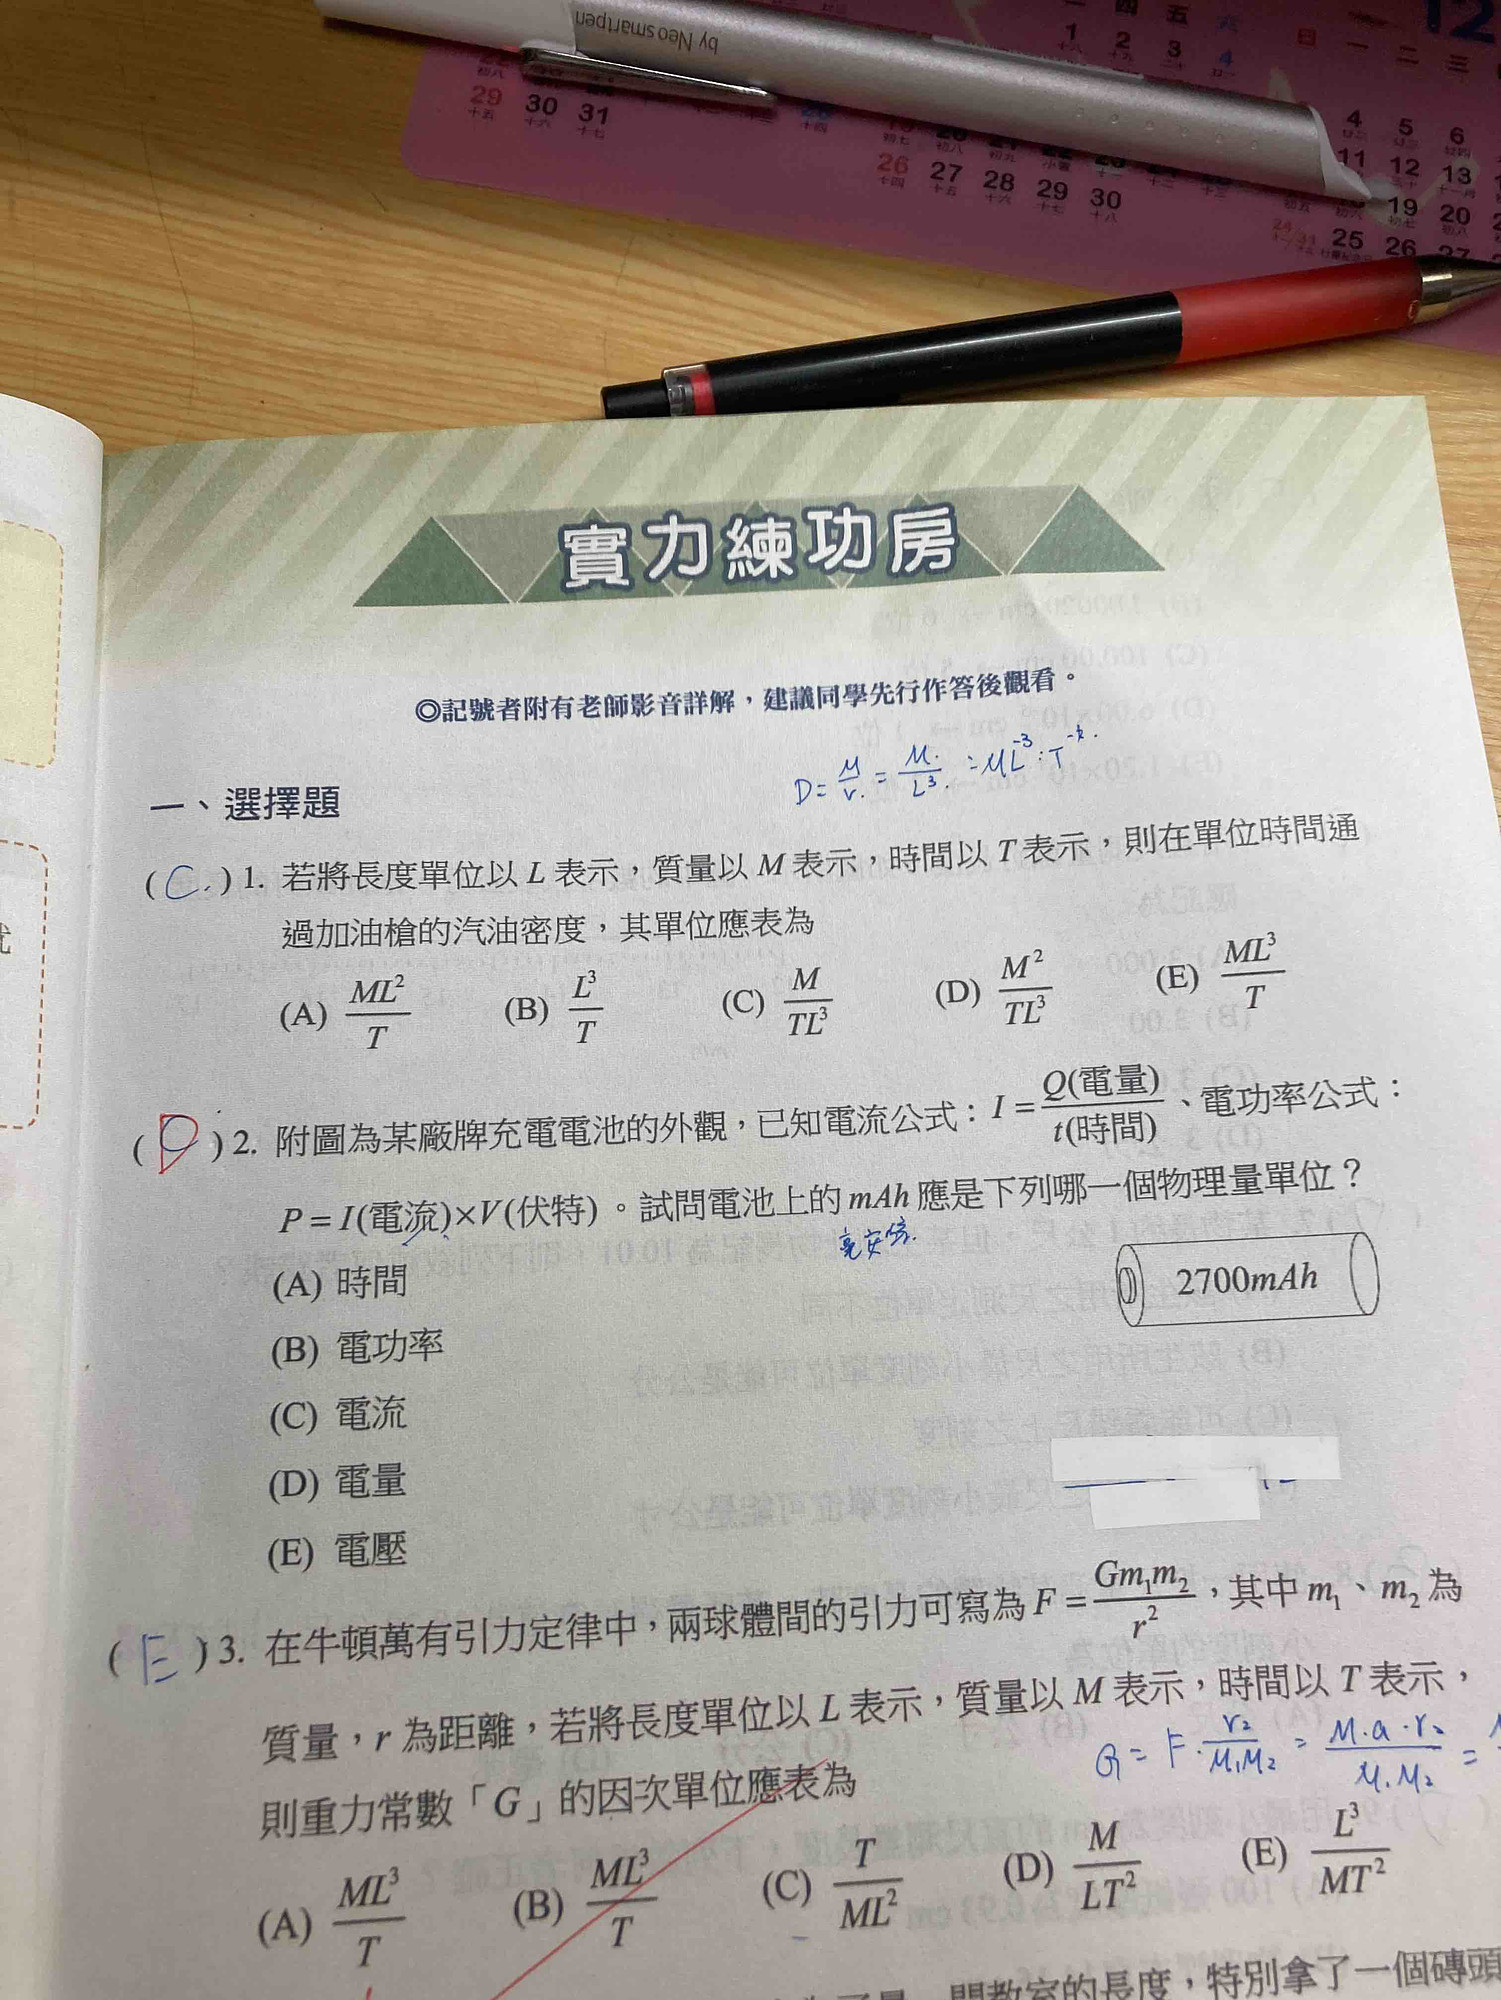 by Neo smartpen
12
一 四 五 六
日 一 二 三
1 2 3 4
4 5 6
29 30 31
十五 十六 十七
11 12 13
26 27 28 29 30
十四 十五 十六 十七 十八
19 20
25 26 27
實力練功房
◎記號者附有老師影音詳解，建議同學先行作答後觀看。
D = M/V = M/L³ = ML⁻³
一、選擇題
( C ) 1. 若將長度單位以 L 表示，質量以 M 表示，時間以 T 表示，則在單位時間通
過加油槍的汽油密度，其單位應表為
(A) ML²/T (B) L³/T (C) M/TL³ (D) M²/TL³ (E) ML³/T
( D ) 2. 附圖為某廠牌充電電池的外觀，已知電流公式：I = Q(電量)/t(時間)、電功率公式：
P = I(電流)×V(伏特)。試問電池上的 mAh 應是下列哪一個物理量單位？
毫安
(A) 時間
2700mAh
(B) 電功率
(C) 電流
(D) 電量
(E) 電壓
( E ) 3. 在牛頓萬有引力定律中，兩球體間的引力可寫為 F = Gm₁m₂/r²，其中 m₁、m₂ 為
質量，r 為距離，若將長度單位以 L 表示，質量以 M 表示，時間以 T 表示，
G = F · r²/M₁M₂ = M·a·r²/M₁M₂ =
則重力常數「G」的因次單位應表為
(A) ML³/T (B) ML³/T (C) T/ML² (D) M/LT² (E) L³/MT²
間教室的長度，特別拿了一個磚頭